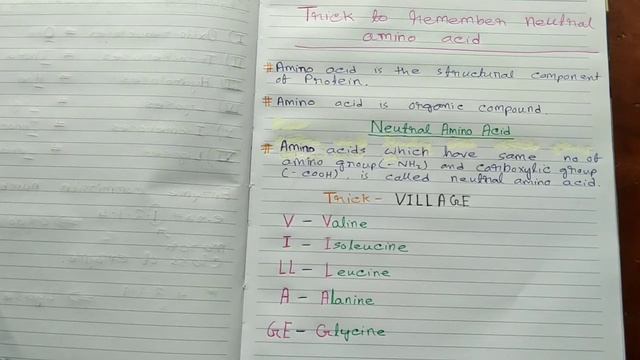 Trick to Remember Neutral
amino acid
# Amino acid is the structural component
of Protein.
# Amino acid is organic compound.
Neutral Amino Acid
# Amino acids which have same no of
amino group (-NH2) and carboxylic group
(-COOH). is called neutral amino acid.
Trick - VILLAGE
V - Valine
I - Isoleucine
LL - Leucine
A - Alanine
GE - Glycine